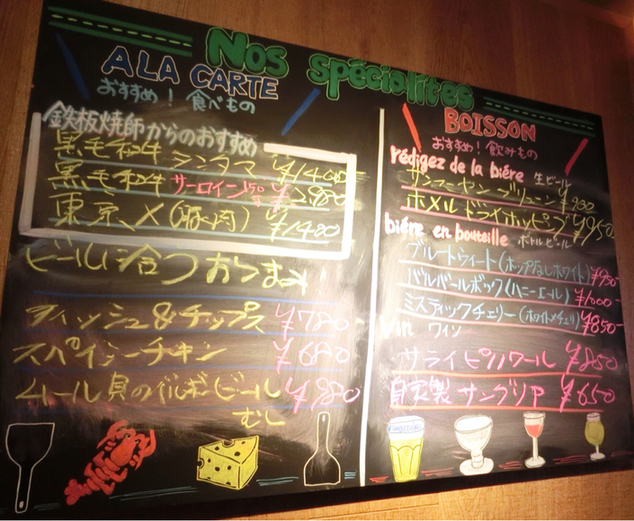 Nos spéciolites
A LA CARTE
おすすめ! 食べもの
鉄板焼師からのおすすめ
黒毛和牛 シンタマ ¥1400
黒毛和牛 サーロイン150g ¥2980
東京X(豚肉) ¥1480
ビールに合うおつまみ
フィッシュ&チップス ¥780
スパイシーチキン ¥680
ムール貝のベルギービール ¥980
むし
BOISSON
おすすめ! 飲みもの
rédigez de la biére 生ビール
サンフーヤン ブリューン ¥900
ホメルドライホッピング ¥950
biére en bouteille ボトルビール
ブルートウィート(ホップなしホワイト) ¥950
バルバールボック(ハニーエール) ¥1000
ミスティックチェリー(ホワイトチェリ) ¥850
vin ワイン
サライ ピノノワール ¥850
自家製 サングリア ¥650